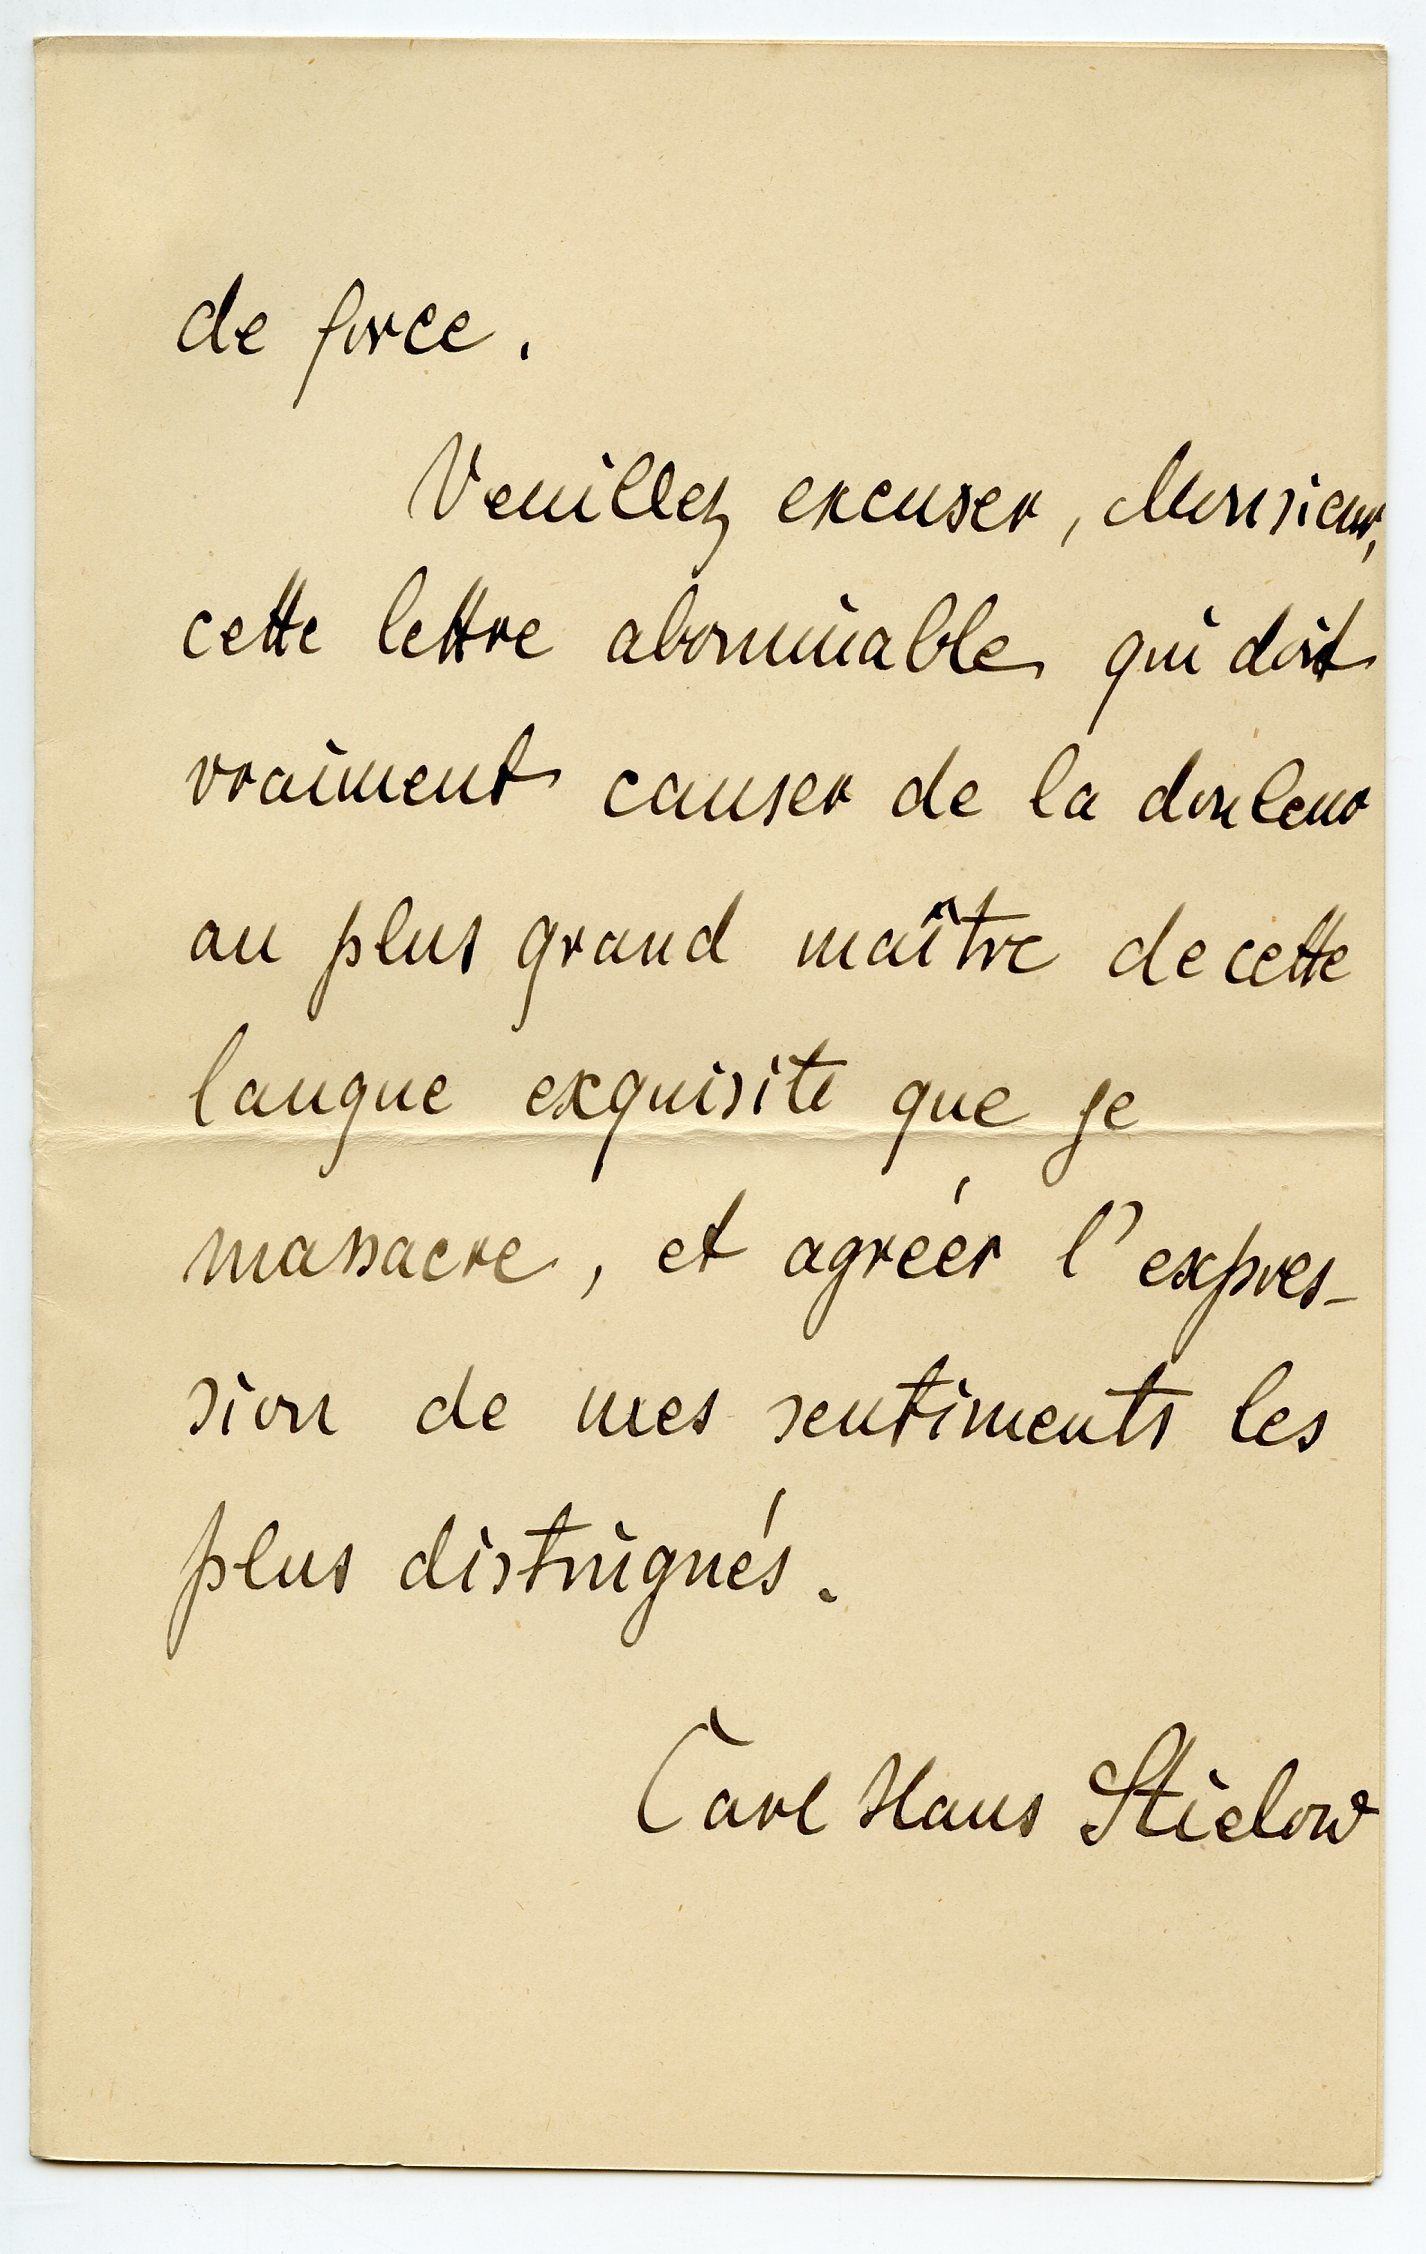 de force.
Veuillez excuser, Monsieur,
cette lettre abominable qui doit
vraiment causer de la douleur
au plus grand maître de cette
langue exquisite que je
massacre, et agréer l'expres-
sion de mes sentiments les
plus distingués.
Carl Hans Stielow